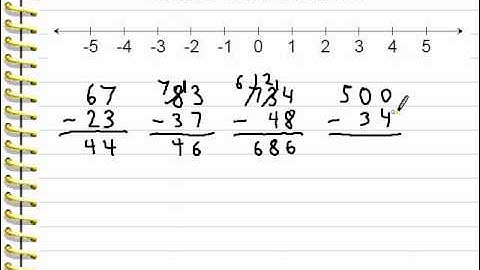 -5 -4 -3 -2 -1 0 1 2 3 4 5
7 1 6 12 1
67 83 734 500
- 23 - 37 - 48 - 34
44 46 686